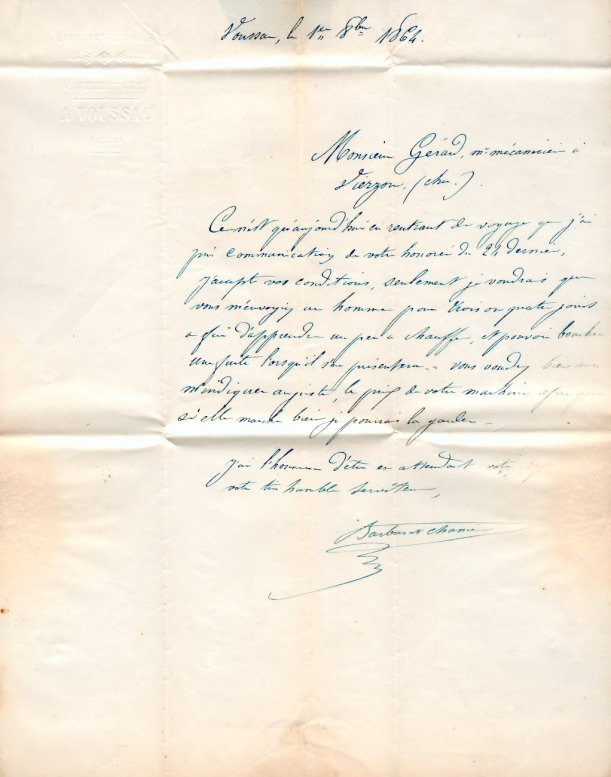 A VOUSSAC
Voussac, le 1er 8bre 1864.
Monsieur Gérard, mn mécanicien à
Vierzon, (cher.)
Ce n'est qu'aujourd'hui en rentrant de voyage que j'ai
pris communication de votre honorée du 24 dernier,
j'accepte vos conditions, seulement je voudrais que
vous m'envoyiez un homme pour trois ou quatre jours
afin d'apprendre un peu a chauffer, et pouvoir boucher
une fuite lorsqu'il s'en présentera. vous voudrez bien aussi
m'indiquer au juste, le prix de votre machine afin que
si elle marche bien je pourrais la garder.
J'ai l'honneur d'être en attendant votre
votre très humble serviteur,
Barbarat